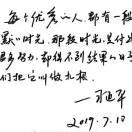 每个优秀的人，都有一段
默的时光，那段时光，是付出
很多努力，却得不到结果的日子
们把它叫做扎根。
2019.7.10